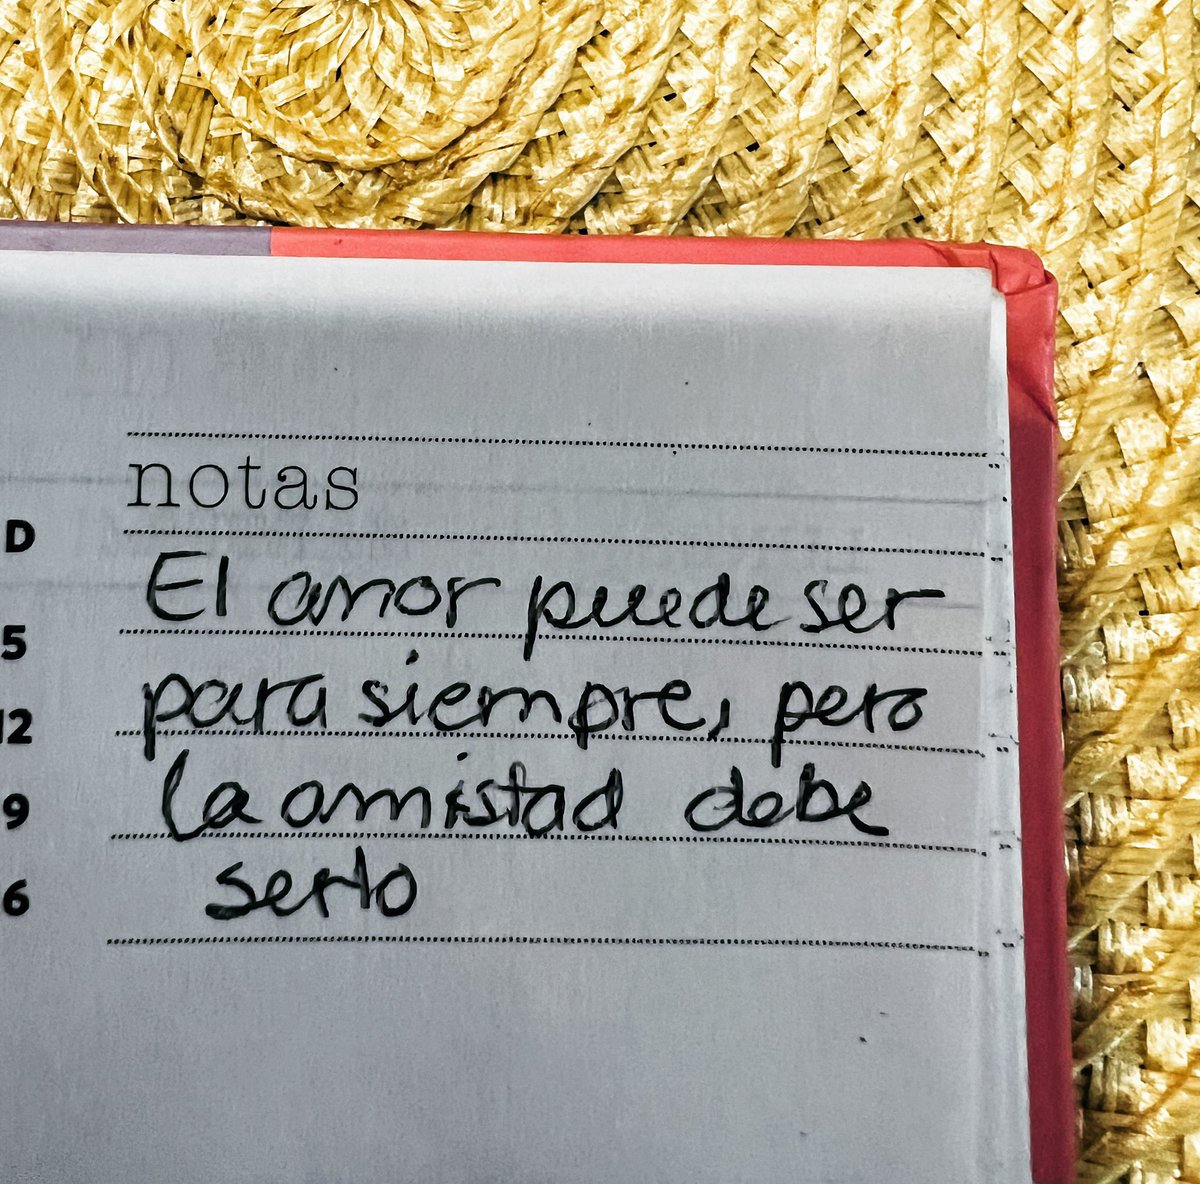 notas
D
El amor puede ser
5
para siempre, pero
12
la amistad debe
9
serlo
6